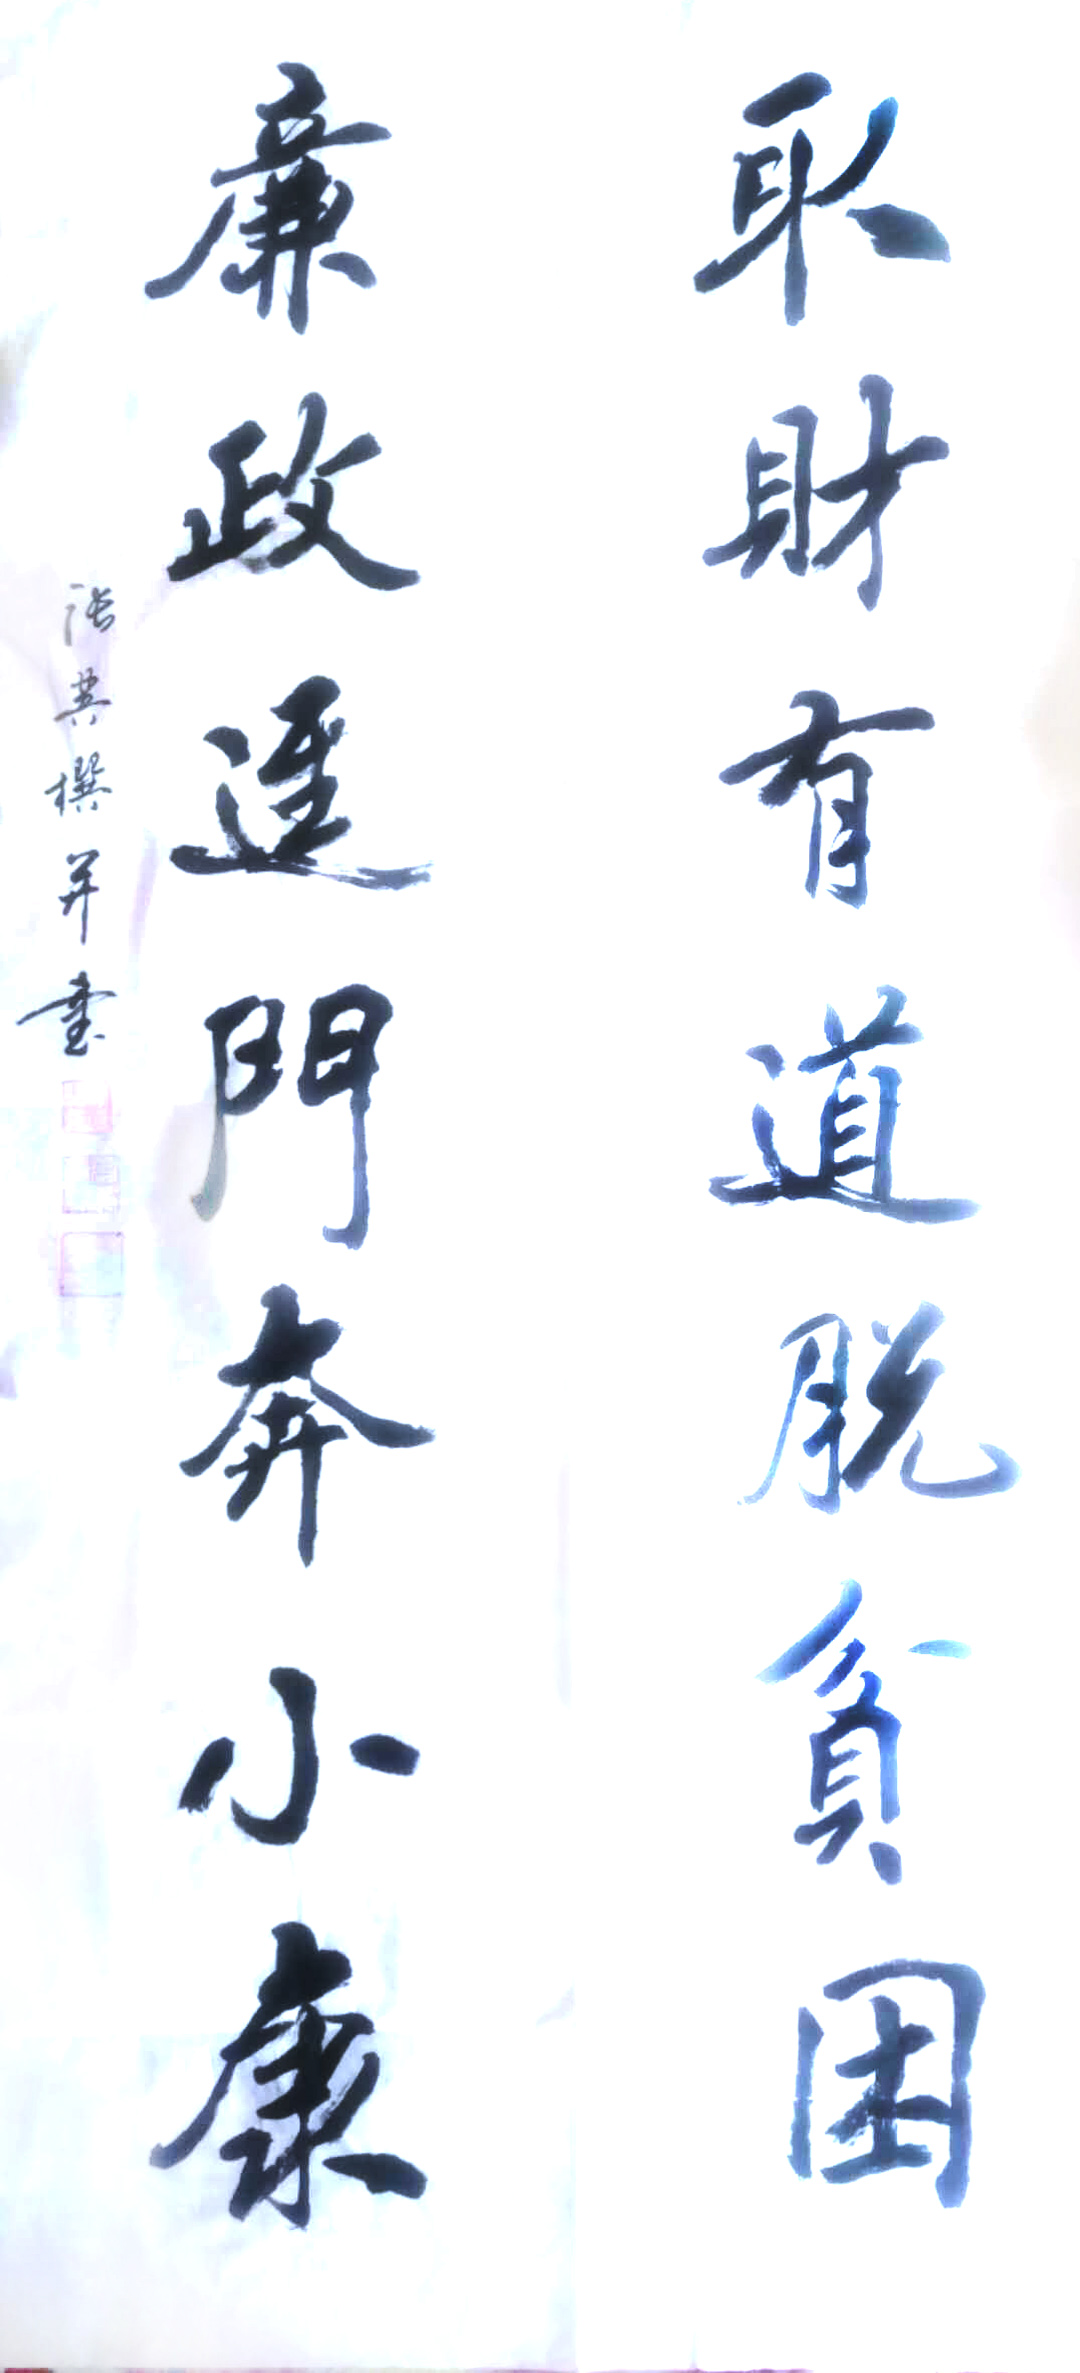 取財有道脱貧困
廉政進門奔小康
張英撰并書